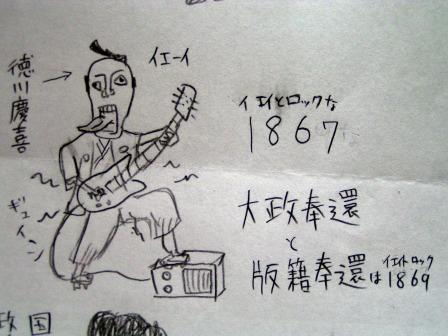 徳川慶喜
イエーイ
ギュイーン
イエイとロックな
1867
大政奉還
と
版籍奉還は
イエイトロック
1869
国